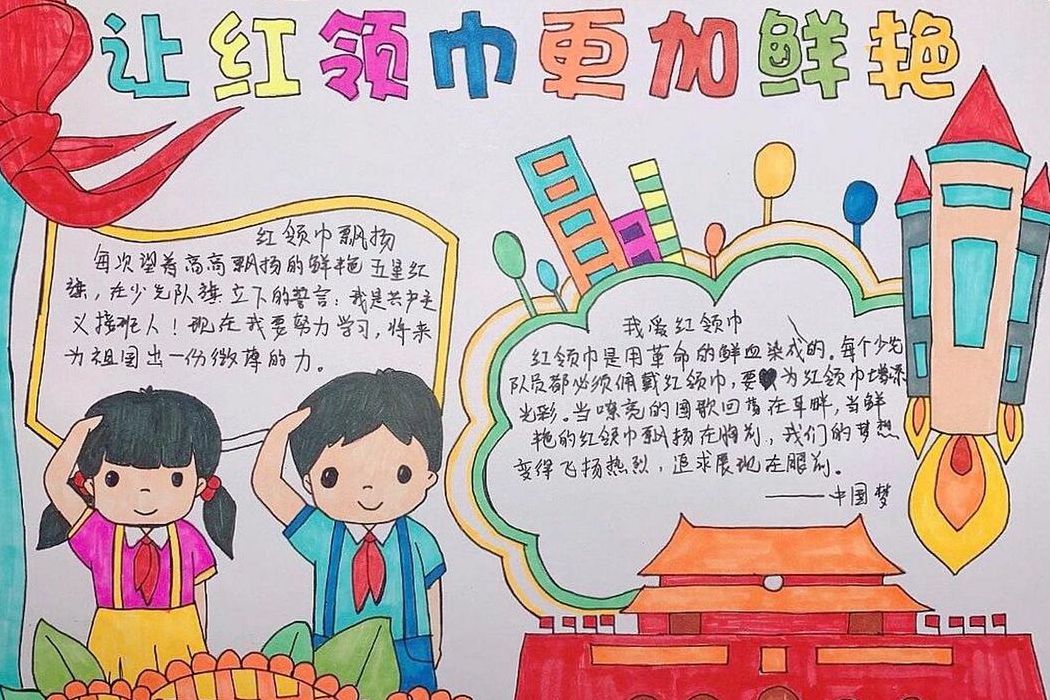 让红领巾更加鲜艳
红领巾飘扬
每次望着高高飘扬的鲜艳五星红
旗，在少先队旗立下的誓言：我是共产主
义接班人！现在我要努力学习，将来
为祖国出一份微薄的力。
我爱红领巾
红领巾是用革命的鲜血染成的。每个少先
队员都必须佩戴红领巾，要为红领巾增添
光彩。当嘹亮的国歌回荡在耳畔，当鲜
艳的红领巾飘扬在胸前，我们的梦想
变得飞扬热烈，追求展现在眼前。
——中国梦